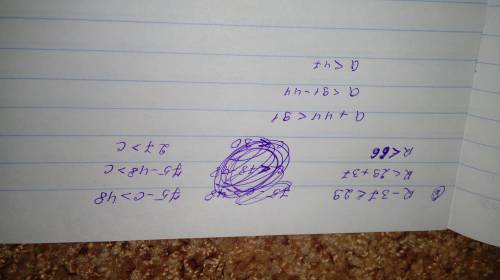 к-37<29
к<29+37
к<66
75-c>48
75-48>c
27>c
a+44<91
a<91-44
a<47